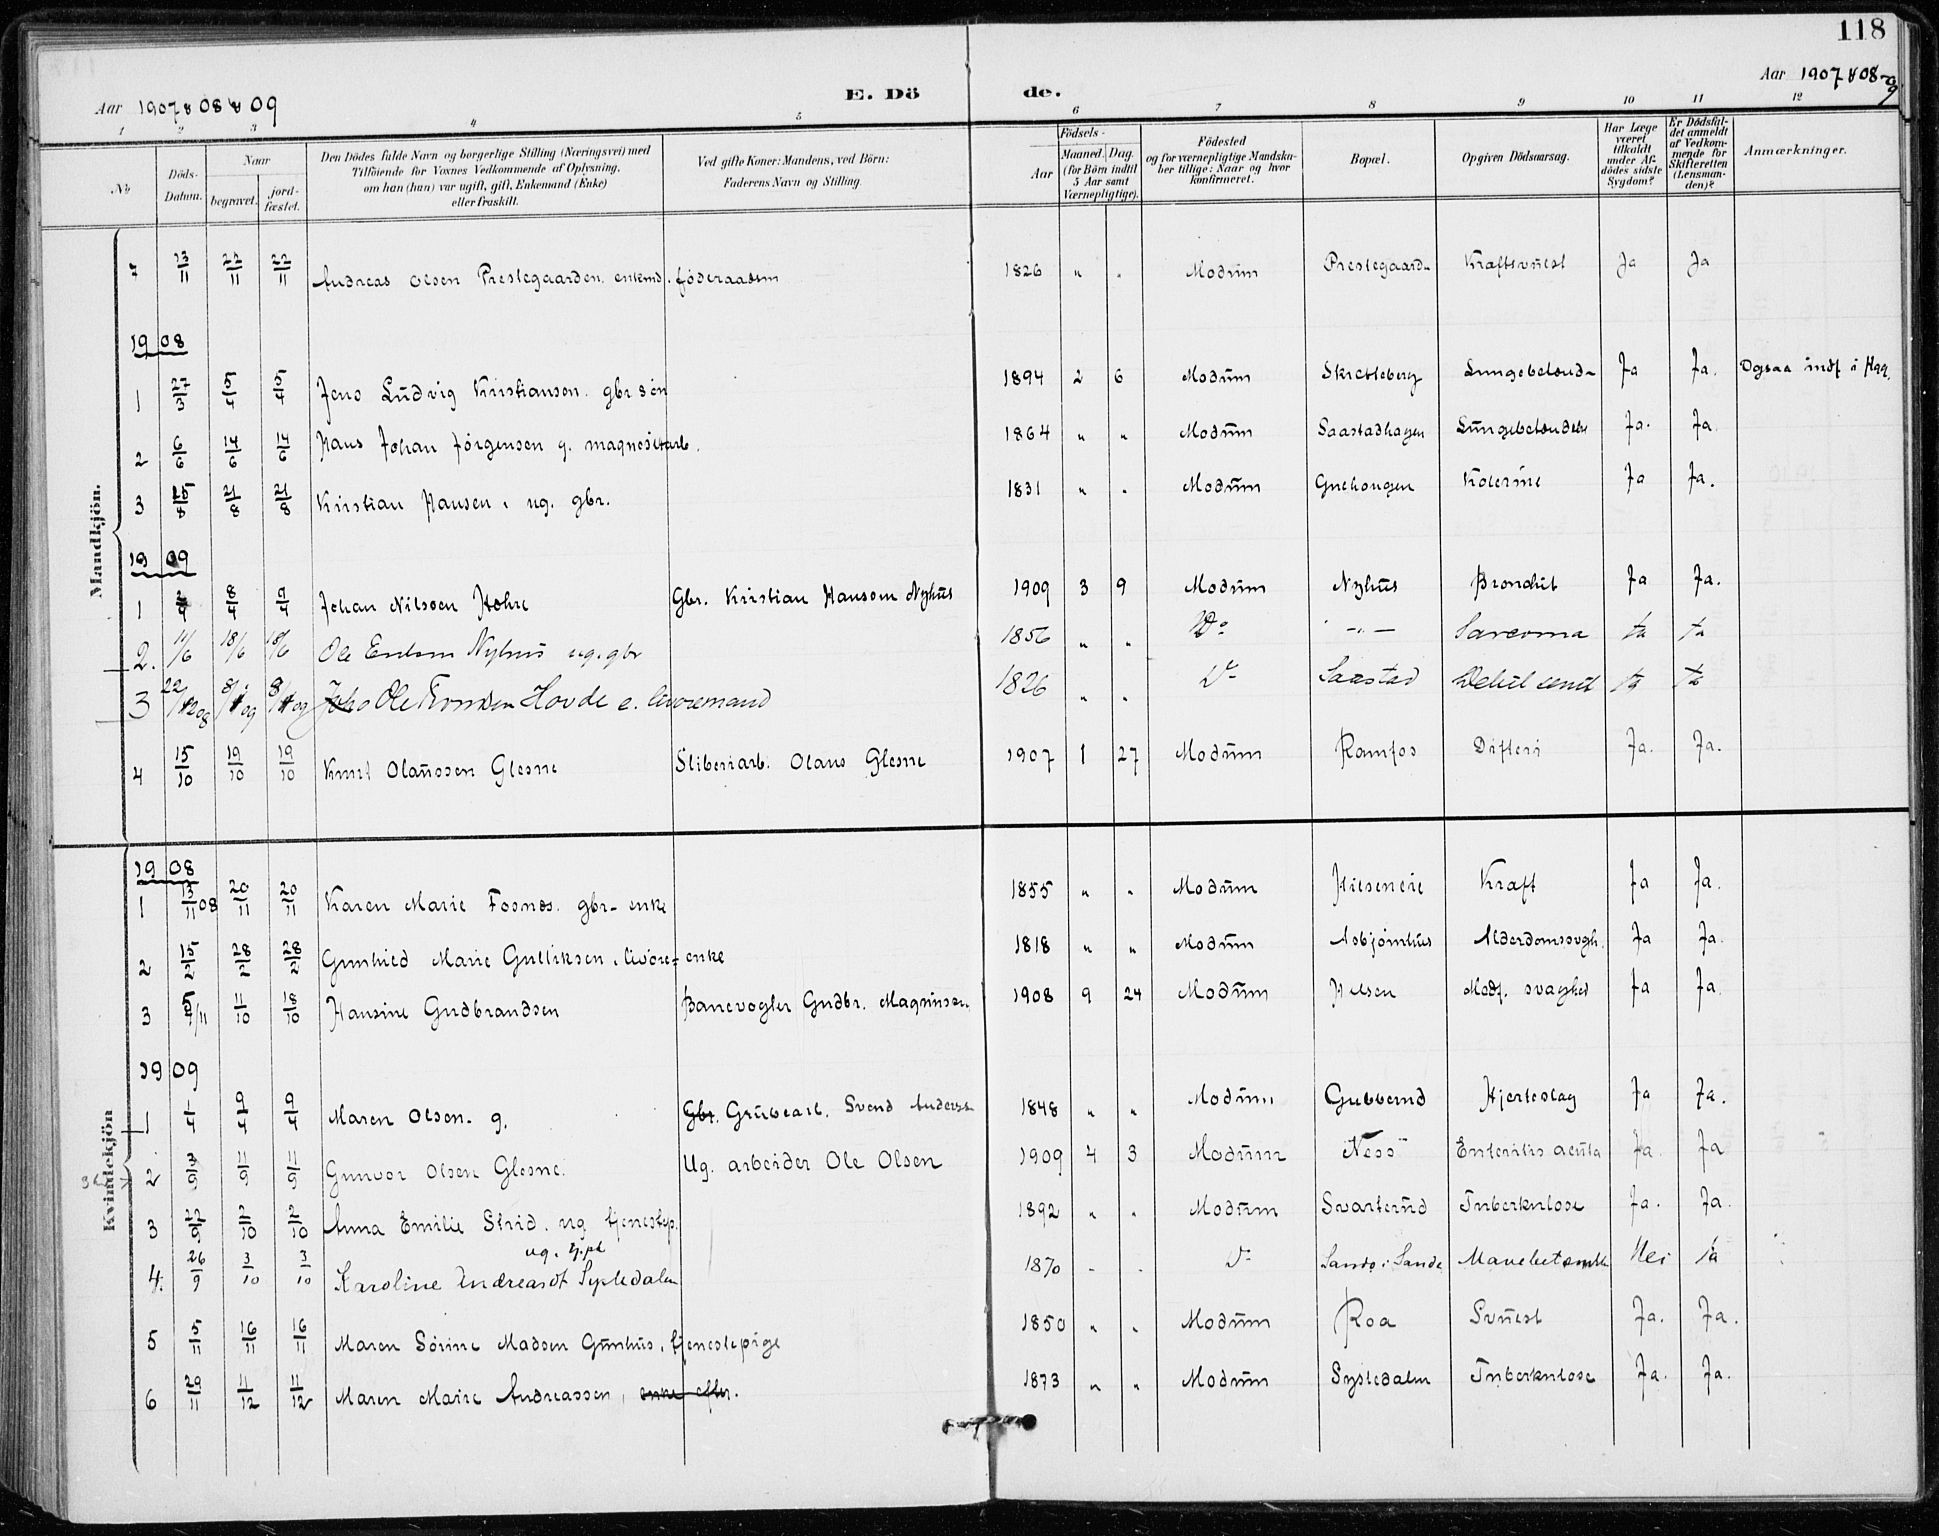 118
Aar 1907 & 08 & 09
E. Dö de.
Aar 1907 & 08 - 09
1 2 3 4 5 6 7 8 9 10 11 12
No
Döds-Datum.
Naar
begravet.
jord-fæstet.
Den Dödes fulde Navn og borgerlige Stilling (Næringsvei) med
Tilföiende for Voxnes Vedkommende af Oplysning,
om han (hun) var ugift, gift, Enkemand (Enke)
eller fraskilt.
Ved gifte Koner: Mandens, ved Börn:
Faderens Navn og Stilling.
Födsels-
Aar
Maaned. Dag.
(for Börn indtil
5 Aar samt
Værnepligtige).
Födested
og for værnepligtige Mandska-
ber tillige: Naar og hvor
konfirmeret.
Bopæl.
Opgiven Dödsaarsag.
Har Læge
været
tilkaldt
under Af-
dödes sidste
Sygdom?
Er Dödsfal-
det anmeldt
af Vedkom-
mende for
Skifteretten
(Lensman-
den)?
Anmærkninger.
Mandkjön.
7 13/11 22/11 22/11 Andreas Olsen Prestegaarden. enkemd. föderaadsm 1826 " " Modum Prestegaarden Kraftsvulst Ja Ja
1908
1 27/3 5/4 5/4 Jens Ludvig Kristiansen. gbr sön 1894 2 6 Modum Skretteberg Lungebetænd- Ja Ja. Ogsaa indf i Hgg.
2 6/6 14/6 14/6 Hans Johan Jörgensen g. magnesitarb. 1864 " " Modum Saastadhagen Lungebetændelse Ja. Ja.
3 15/8 21/8 21/8 Kristian Hansen, ug. gbr. 1831 " " Modum Gnehougen Kolerine Ja Ja.
1909
1 2/4 8/4 9/4 Johan Nilsson Hohre Gbr. Kristian Hansen Nyhus 1909 3 9 Modum Nyhus Bronchit Ja Ja.
2. 11/6 18/6 18/6 Ole Nyhus ug. gbr 1856 " " Do -"- Sarcoma Ja Ja
3 22/12 08 8/1 09 8/1 09 Ole Hovde e. livöremand 1826 " " Do Saastad Debil senil Ja Ja
4 15/10 19/10 19/10 Knut Olaussen Glesne Sliberiarb. Olaus Glesne 1907 1 27 Modum Ramfos Difteri Ja. Ja.
Kvindekjön
1908
1 13/11 08 20/11 20/11 Karen Marie Fosnæs. gbr- enke 1855 " " Modum Hilseneie Kraft Ja Ja.
2 15/2 28/2 28/2 Gunhild Marie Gulliksen, livöre- enke 1818 " " Modum Asbjörnhus Alderdomssvagh. Ja Ja.
3 5/11 11/10 18/10 Hansine Gudbrandsen Banevogter Gudbr. Magnussen 1908 9 24 Modum Hilsen Medf. svaghed Ja Ja.
1909
1 1/4 9/4 9/4 Maren Olsen. g. Gbr. Grubearb. Svend Anderss. 1848 " " Modum Gubberud Hjerteslag Ja Ja.
2 3/9 11/9 11/9 Gunvor Olsen Glesne. Ug. arbeider Ole Olsen 1909 4 3 Modum Næss Enteritis acuta Ja. Ja
3 22/9 2/10 2/10 Anna Emilie Strid. ug tjenestep. 1892 " " Modum Svarterud Tuberkulose Ja. Ja.
ug. tj.pi
4. 26/9 3/10 3/10 Karoline Andreasdt Sysledalen 1870 - - Do Sands i Sande Mavebetændelse Nei Ja
5 5/11 16/11 16/11 Maren Sörine Madsen Gunhus, tjenestepige 1850 " " Modum Roa Svulst Ja. Ja.
6 29/11 11/12 11/12 Maren Marie Andreassen, enke efter. 1873 " " Modum Sysledalen Tuberkulose Ja. Ja.